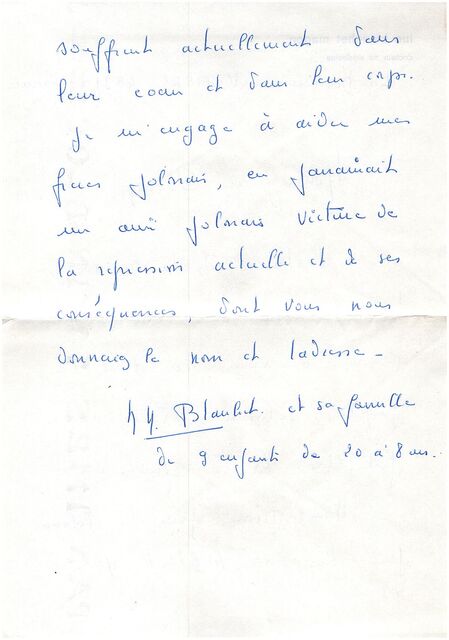 souffrent actuellement dans
leur coeur et dans leur corps.
Je m'engage à aider mes
frères polonais, en parrainant
un ami polonais victime de
la repression actuelle et de ses
conséquences, dont vous nous
donnerez le nom et l'adresse -
M. Blanlet. et sa famille
de 9 enfants de 20 à 8 ans.